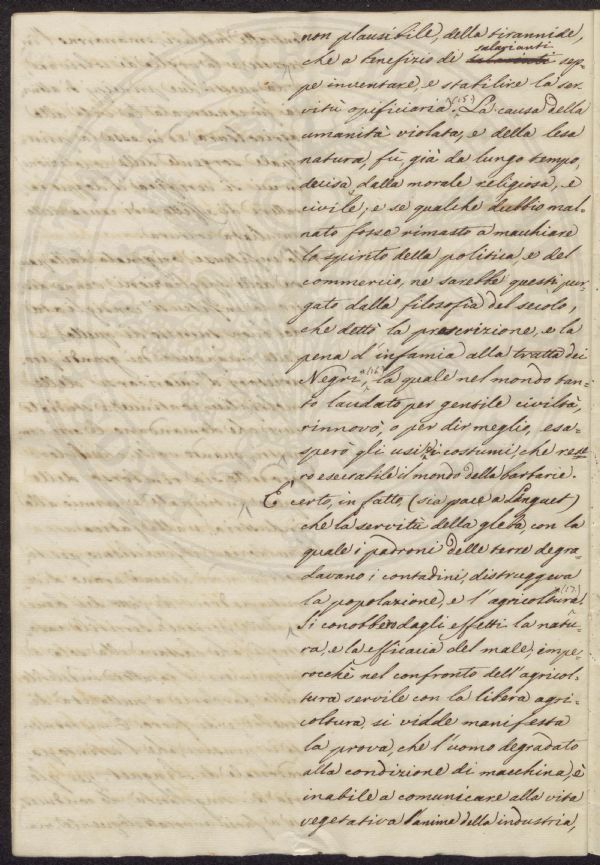 non plausibile, della tirannide,
che a benefizio di salarianti sep-
pe inventare, e stabilire la ser-
vitù opificiaria (15). La causa della
umanità violata, e della lesa
natura, fù, già da lungo tempo,
decisa dalla morale religiosa, e
civile, e se qualche dubbio mal-
nato fosse rimasto a macchiare
lo spirito della politica e del
commercio, ne sarebbe questi pur-
gato dalla filosofia del secolo,
che dettò la prescrizione, e la
pena d'infamia alla tratta dei
Negri (16), la quale nel mondo tan-
to laudato per gentile civiltà,
rinnovò, o per dir meglio, esa-
sperò gli usi, i costumi, che rese-
ro esecrabile il mondo della barbarie.
È certo, in fatto, (sia pace a Linguet)
che la servitù della gleba, con la
quale i padroni delle terre degra-
davano i contadini, distruggeva
la popolazione, e l'agricoltura (17).
Si conobbero dagli effetti la natu-
ra, e la efficacia del male; impe-
rocchè nel confronto dell'agricol-
tura servile con la libera agri-
coltura, si vidde manifesta
la prova, che l'uomo degradato
alla condizione di macchina, è
inabile a comunicare alla vita
vegetativa l'anime della industria,